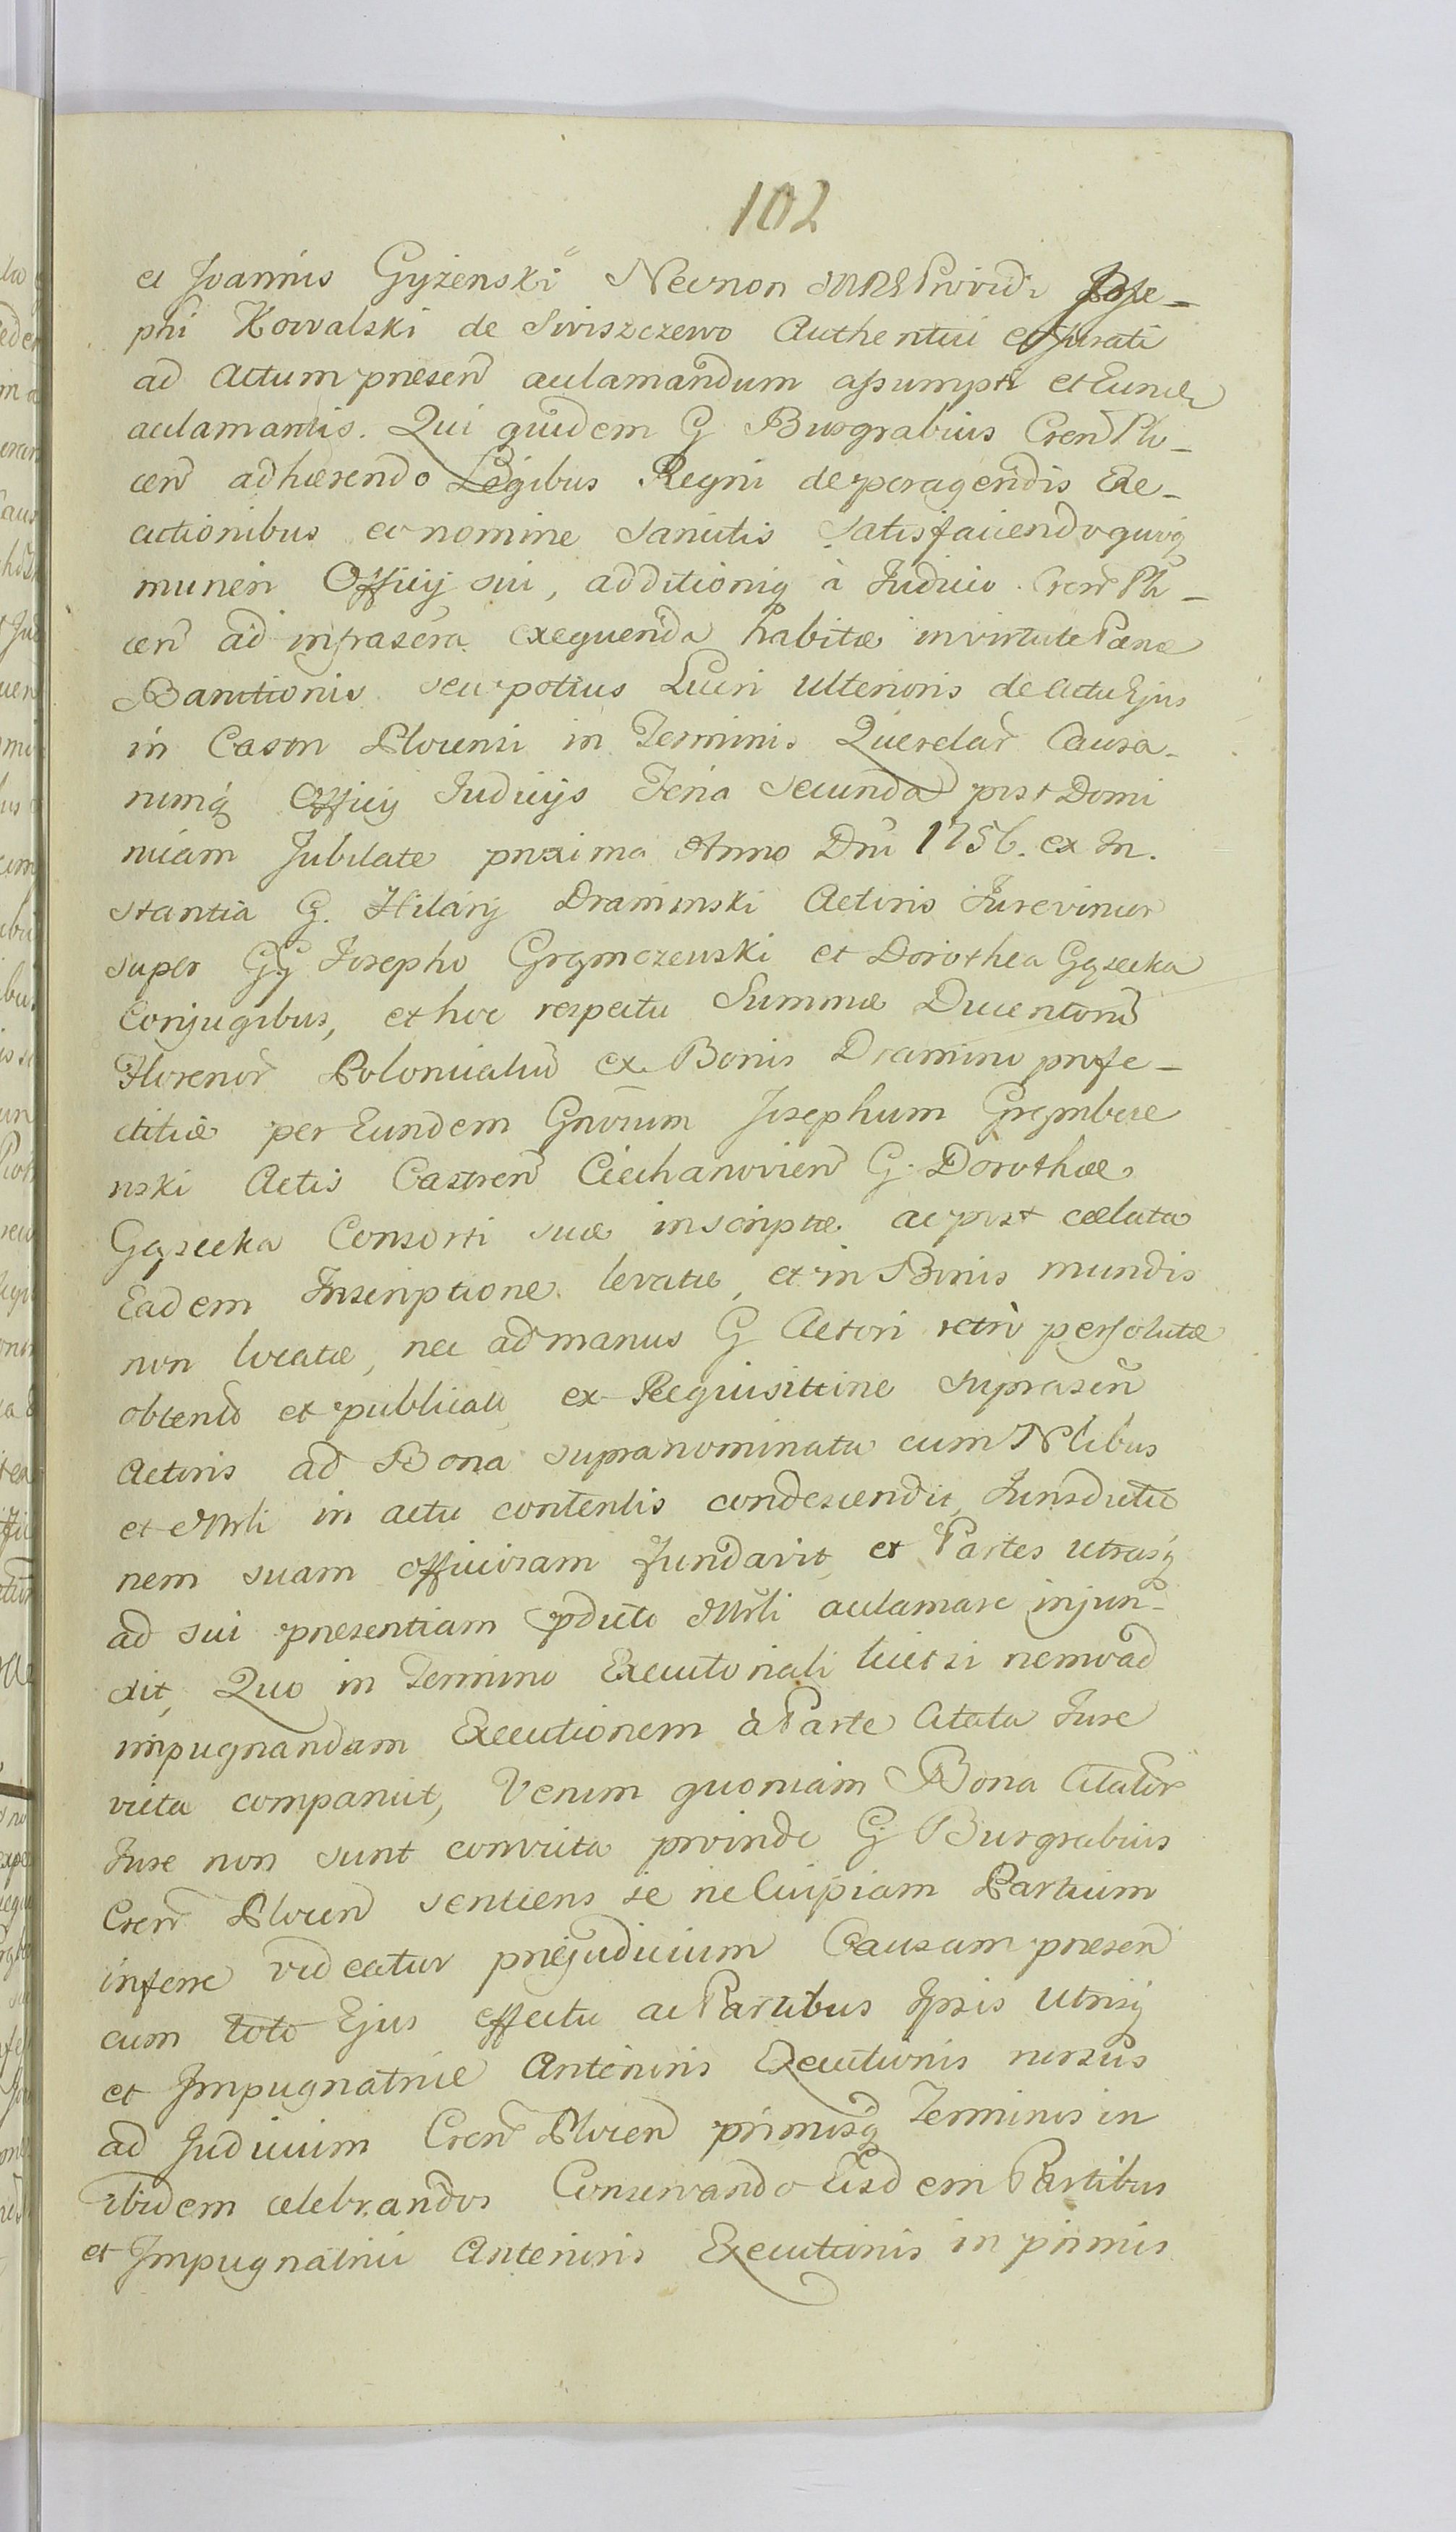 102
et Joannis Gyżenski Necnon Providi Jose-
phi Kowalski de Swiszczewo Authentici et Jurati
ad Actum presen acclamandum assumpti et Eunde
acclamantis. Qui quidem G Burgrabius Cren Plo-
cen adhærendo Legibus Regni de peragendis Exe-
cutionibus eo nomine Sancitis Satisfaciendoquoq
muneri Officij sui, additioniq à Judicio Cren Plo-
cen ad infrascra exequenda habitæ in virtute Pænæ
Bannitionis seu potius Lucri Ulterioris de Actu Ejus
in Castro Plocensi in Terminis Querelar Causa-
rumq Officij Judicijs Feria Secunda post Domi
nicam Jubilate proxima Anno Dni 1756. ex In.
stantia G. Hilarij Draminski Actoris Jurevictor
super GG Josepho Grąmczewski et Dorothea Gąsecka
Conjugibus, et hoc respectu Summæ Ducentorũ
Florenor Polonicaliũ ex Bonis Dramino profe-
ctitiæ per Eundem Gnrosum Josephum Grąmbcze
wski Actis Castren Ciechanovien G. Dorotheæ
Gąsecka Consorti suæ inscriptæ ac post cælata
Eadem Inscriptione levatæ, et in Bonis mundis
non locatæ, nec ad manus G Actori retrò persolutæ
obtento et publicato ex Requisitione suprascri
Actoris ad Bona supranominata cum Nobilibus
et Mrli in actu contentis condescendit, Jurisdictio
nem suam officiosam fundavit, et Partes utrasq
ad sui presentiam pdicto Mrli acclamare injun-
xit, Quo in Termino Executoriali licet si nemo ad
impugnandam Executionem à Parte Citata Jure
victa comparuit, Verum quoniam Bona Citator
Jure non sunt convicta proinde G Burgrabius
Cren Plocen sentiens se ne Cuipiam Partium
inferre videatur præjudicium Causam presen
cum toto Ejus effectu ac Partibus Ipsis Utrisq
et Impugnatrice Anterioris Executionis rursus
ad Judicium Cren Plocen primosq Terminos in
ibidem celebrandos Conservando Eisdem Partibus
et Impugnatrici Anterioris Executionis in primis